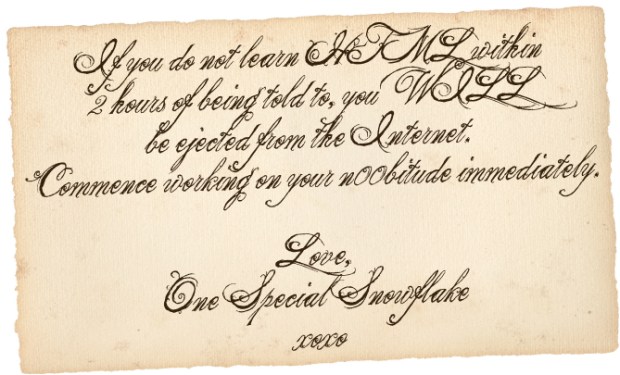 If you do not learn HTML within
2 hours of being told to, you WILL
be ejected from the Internet.
Commence working on your n00bitude immediately.
Love,
One Special Snowflake
xoxo